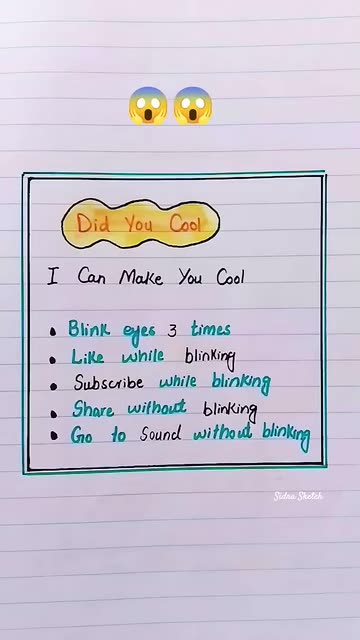 Did You Cool
I Can Make You Cool
• Blink eyes 3 times
• Like while blinking
• Subscribe while blinking
• Share without blinking
• Go to Sound without blinking
Sidra Sketch